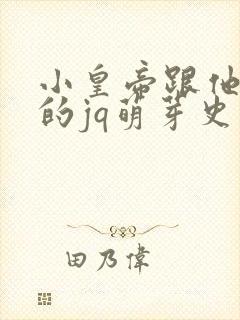 小皇帝跟他
的jq萌芽史
田乃偉